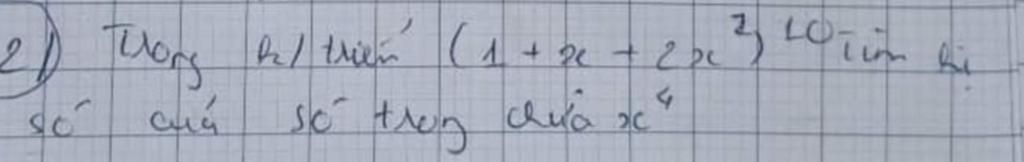 2) Trong k/ triển (1 + x + 2x²)¹⁰ Tìm hệ
số của số trong chứa x⁴